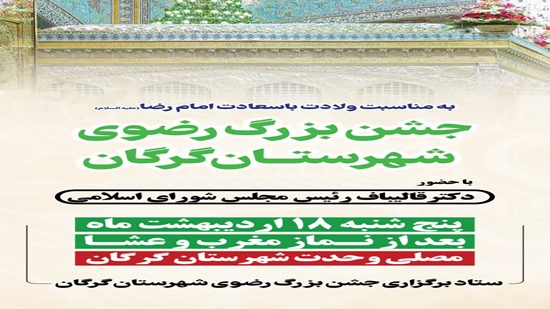 به مناسبت ولادت باسعادت امام رضا (علیه السلام)
جشن بزرگ رضوی
شهرستان گرگان
با حضور
دکتر قالیباف رئیس مجلس شورای اسلامی
پنج شنبه ۱۸ اردیبهشت ماه
بعد از نماز مغرب و عشا
مصلی وحدت شهرستان گرگان
ستاد برگزاری جشن بزرگ رضوی شهرستان گرگان